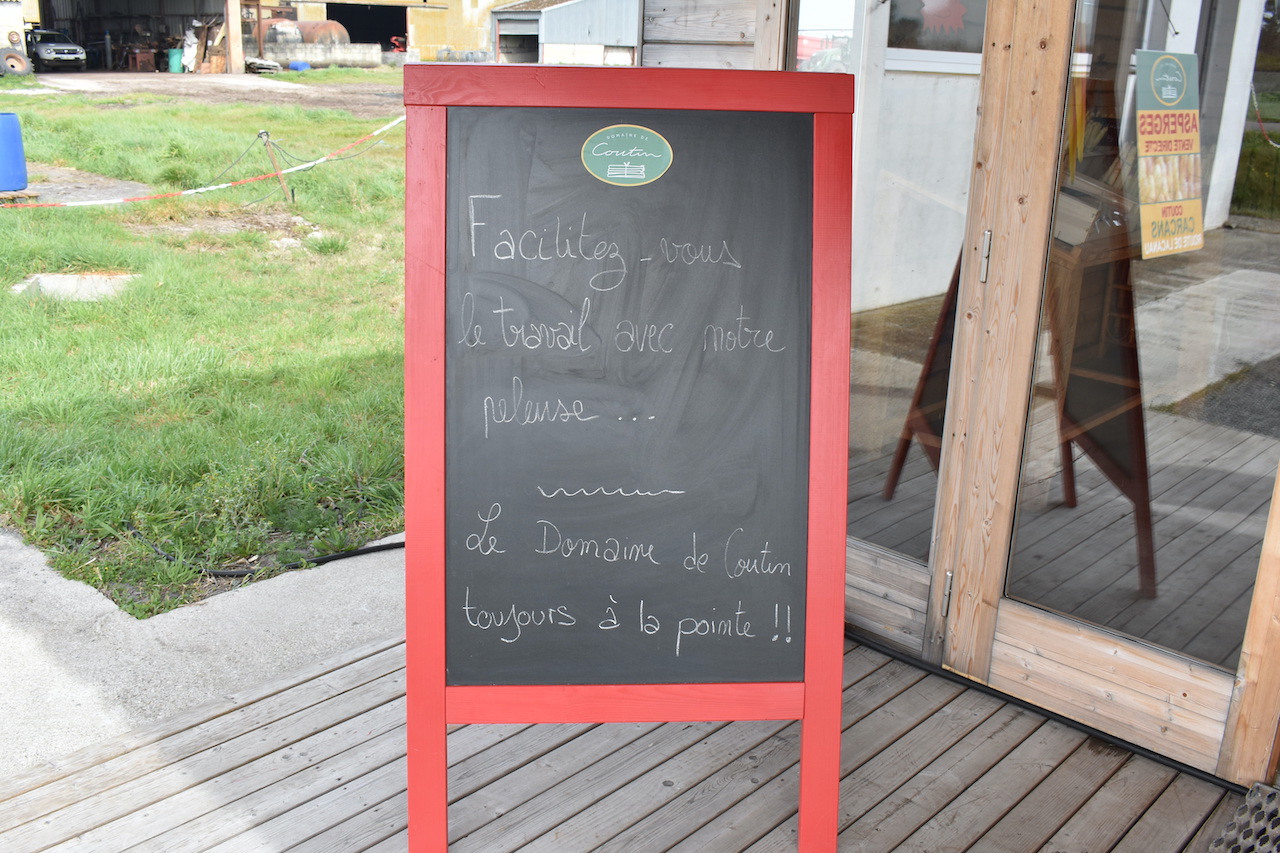 DOMAINE DE
Coutin
Facilitez-vous
le travail avec notre
peleuse ...
Le Domaine de Coutin
toujours à la pointe !!
Coutin
ASPERGES
VENTE DIRECTE
COUTIN
CARCANS
ROUTE DE LACANAU